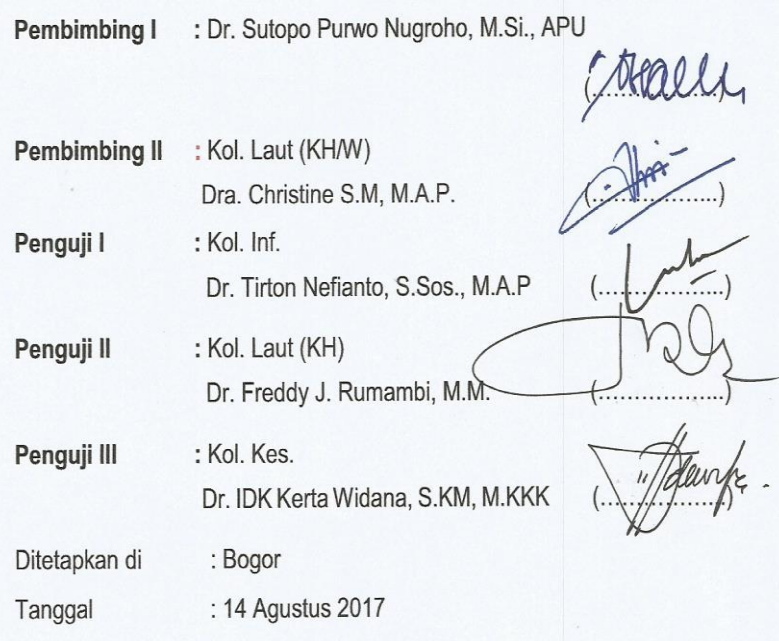 Pembimbing I : Dr. Sutopo Purwo Nugroho, M.Si., APU
(....................)
Pembimbing II : Kol. Laut (KH/W)
Dra. Christine S.M, M.A.P. (....................)
Penguji I : Kol. Inf.
Dr. Tirton Nefianto, S.Sos., M.A.P (....................)
Penguji II : Kol. Laut (KH)
Dr. Freddy J. Rumambi, M.M. (....................)
Penguji III : Kol. Kes.
Dr. IDK Kerta Widana, S.KM, M.KKK (....................)
Ditetapkan di : Bogor
Tanggal : 14 Agustus 2017